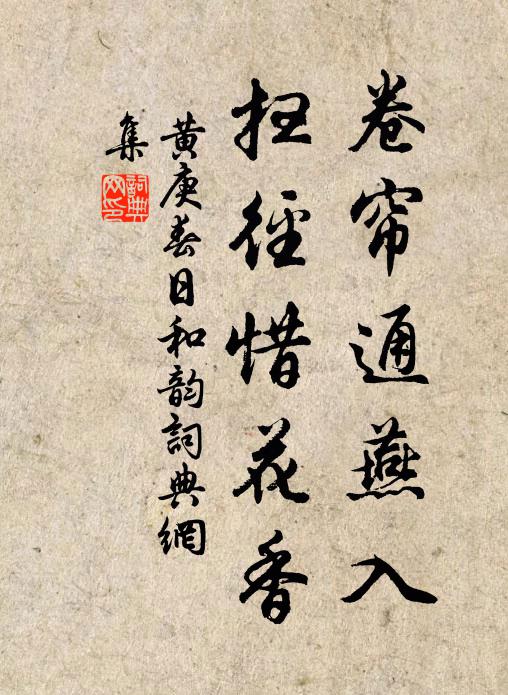 卷帘通燕入
扫径惜花香
黄庚春日和韵词典網
集
詞典網印